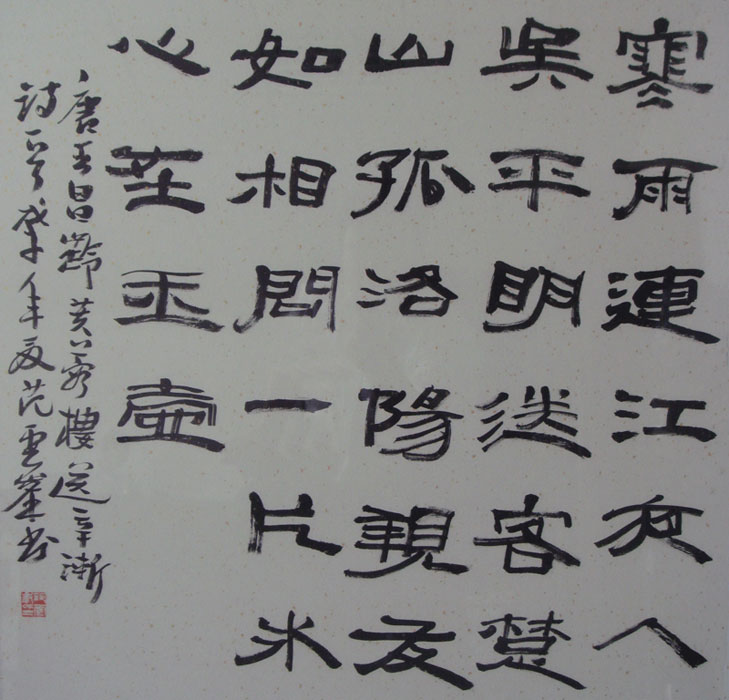 寒雨連江夜入
吳平明送客楚
山孤洛陽親友
如相問一片冰
心在玉壺
唐王昌齡芙蓉樓送辛漸
詩一首年夏范書